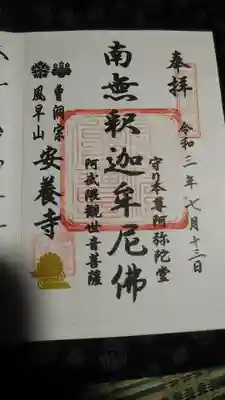 奉拝
令和三年七月十三日
南無釈迦牟尼佛
守り本尊阿弥陀堂
阿武隈観世音菩薩
曹洞宗
風早山
安養寺